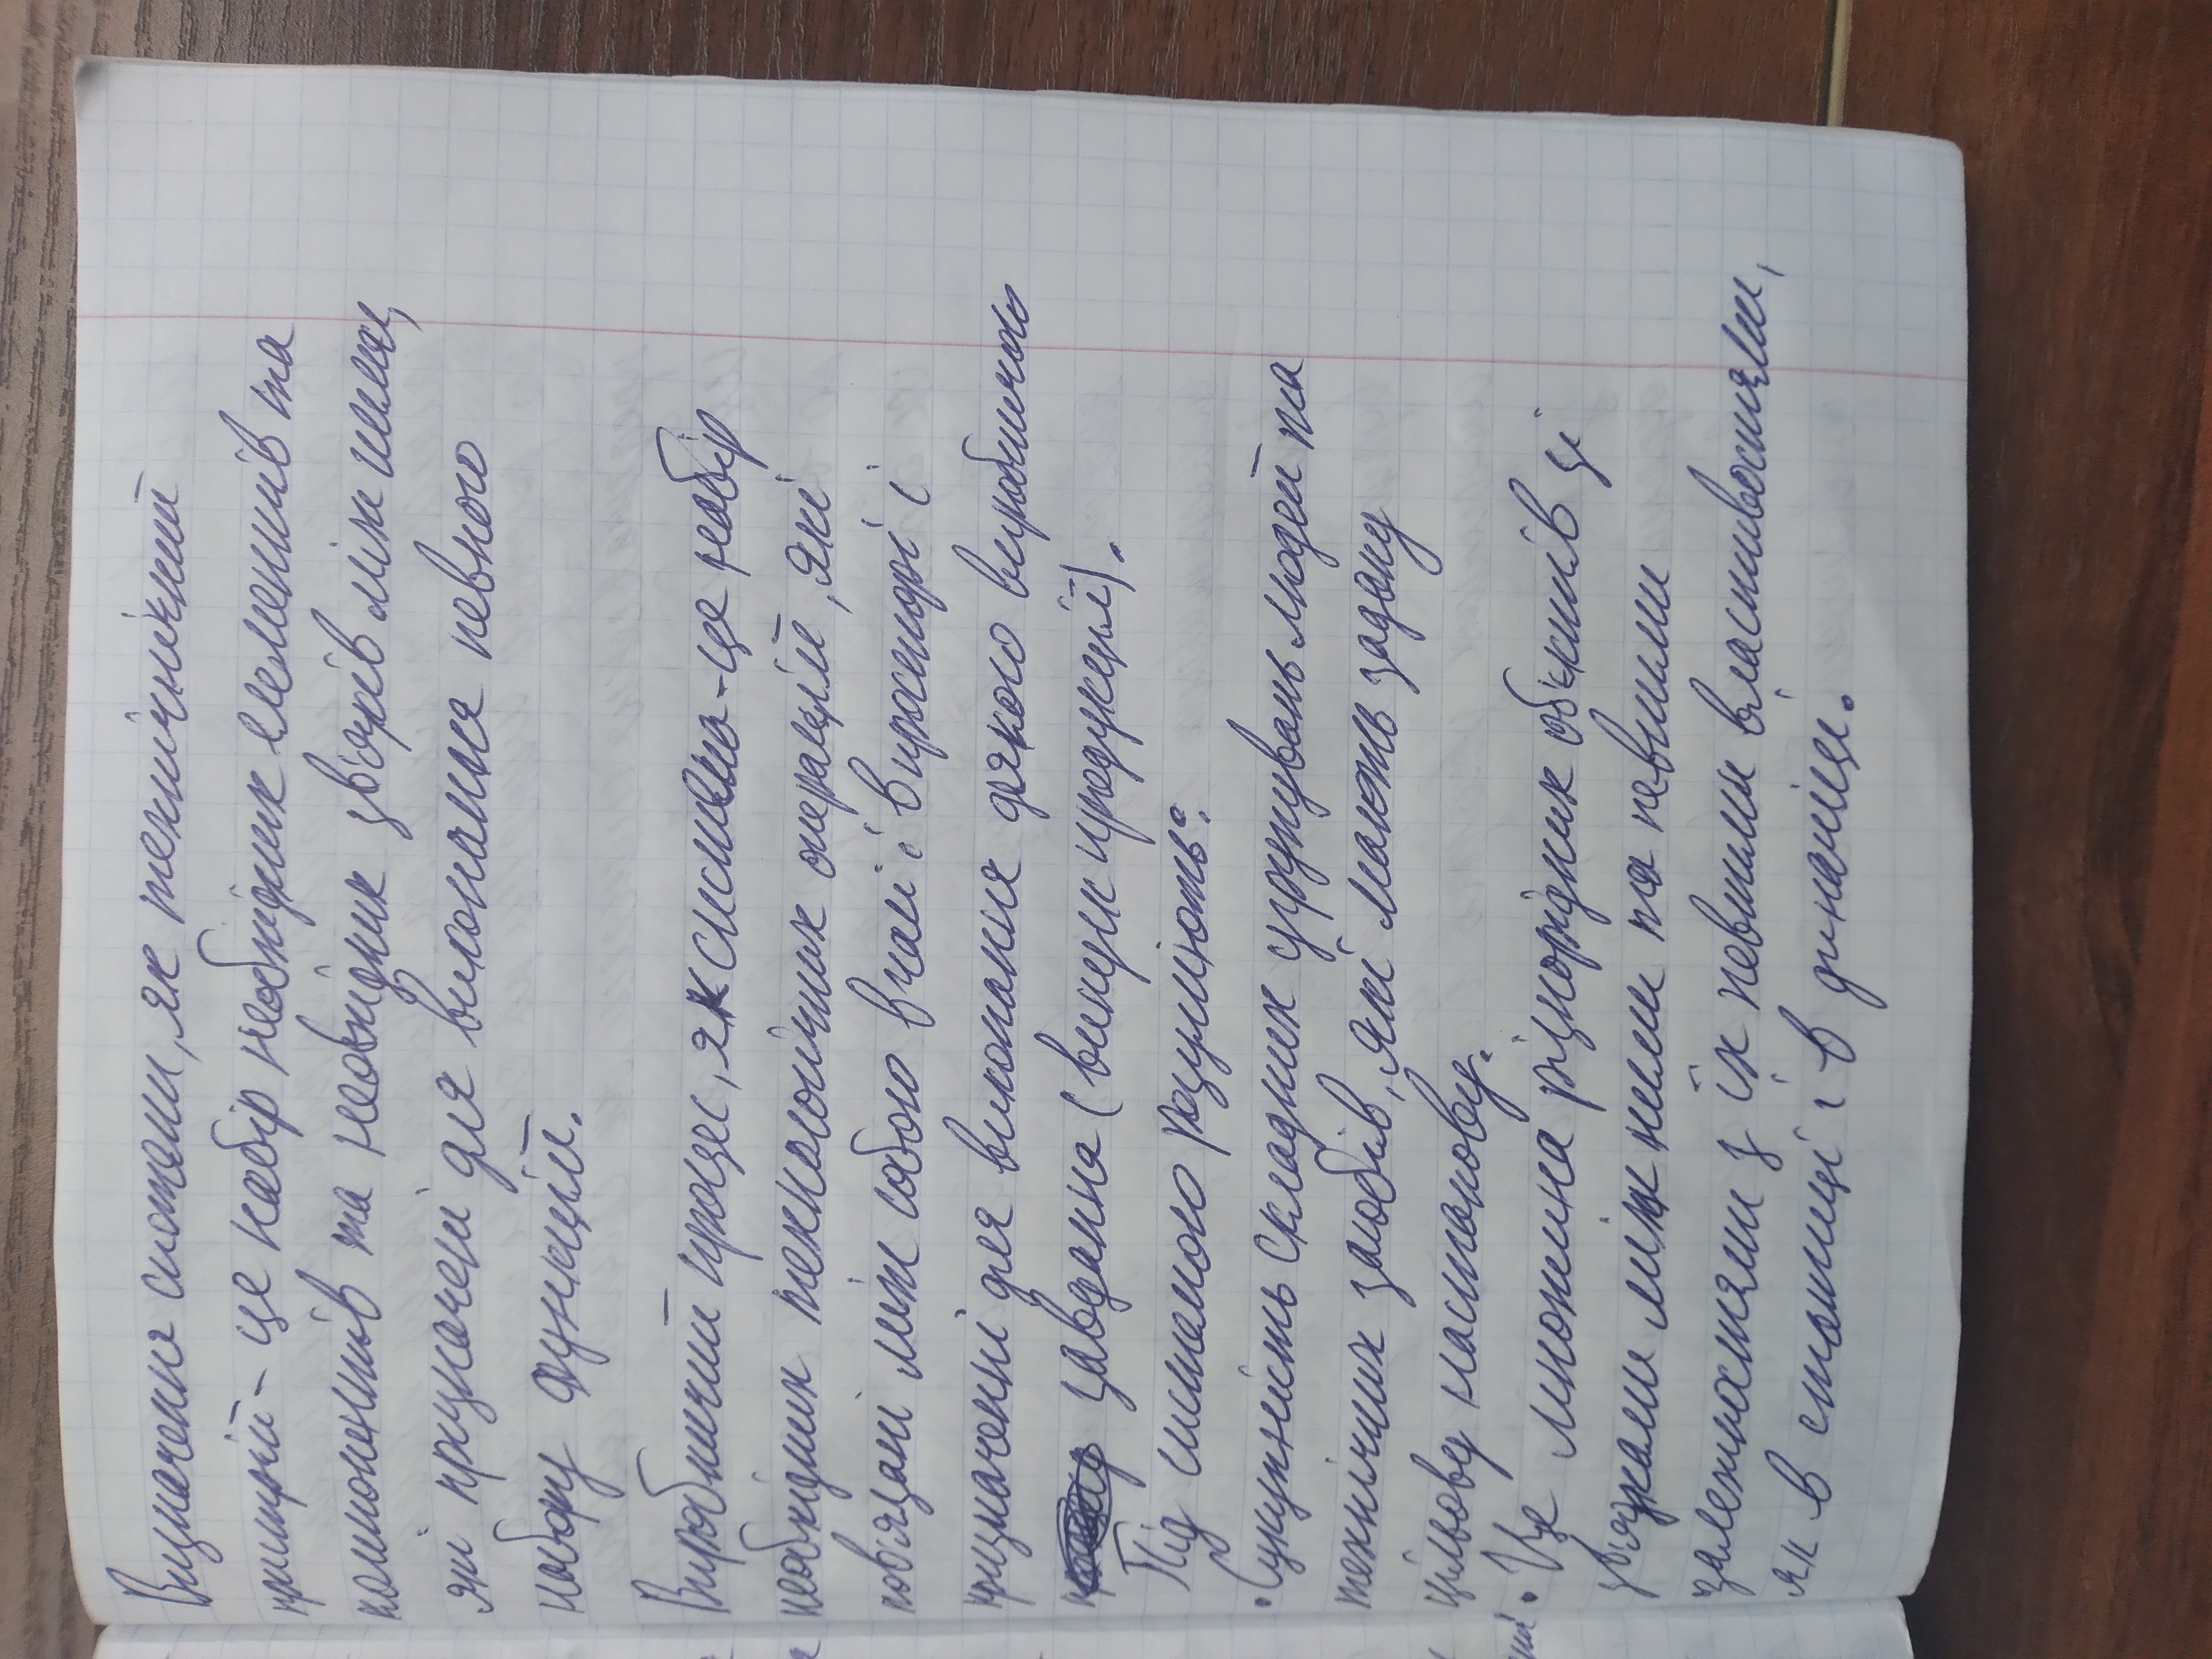 Визначення системи, як технічнічний
пристрій - це набір необхідних елементів та
компонентів та необхідних зв'язків між ними,
які призначені для виконання певного
набору функцій.
Виробничий процес, як система - це набір
необхідних технологічних операцій, які
пов'язані між собою в часі і в просторі і
призначенні для виконання деякого виробничого
завдання (випуск продукції).
Під системою розуміють:
• Сукупність складних угрупувань людей та
технічних засобів, які мають задану
цільову настанову.
• Це множина різнорідних об'єктів зі
зв'язками між ними та певними
залежностями з їх певними властивостями,
як в статиці і в динаміці.